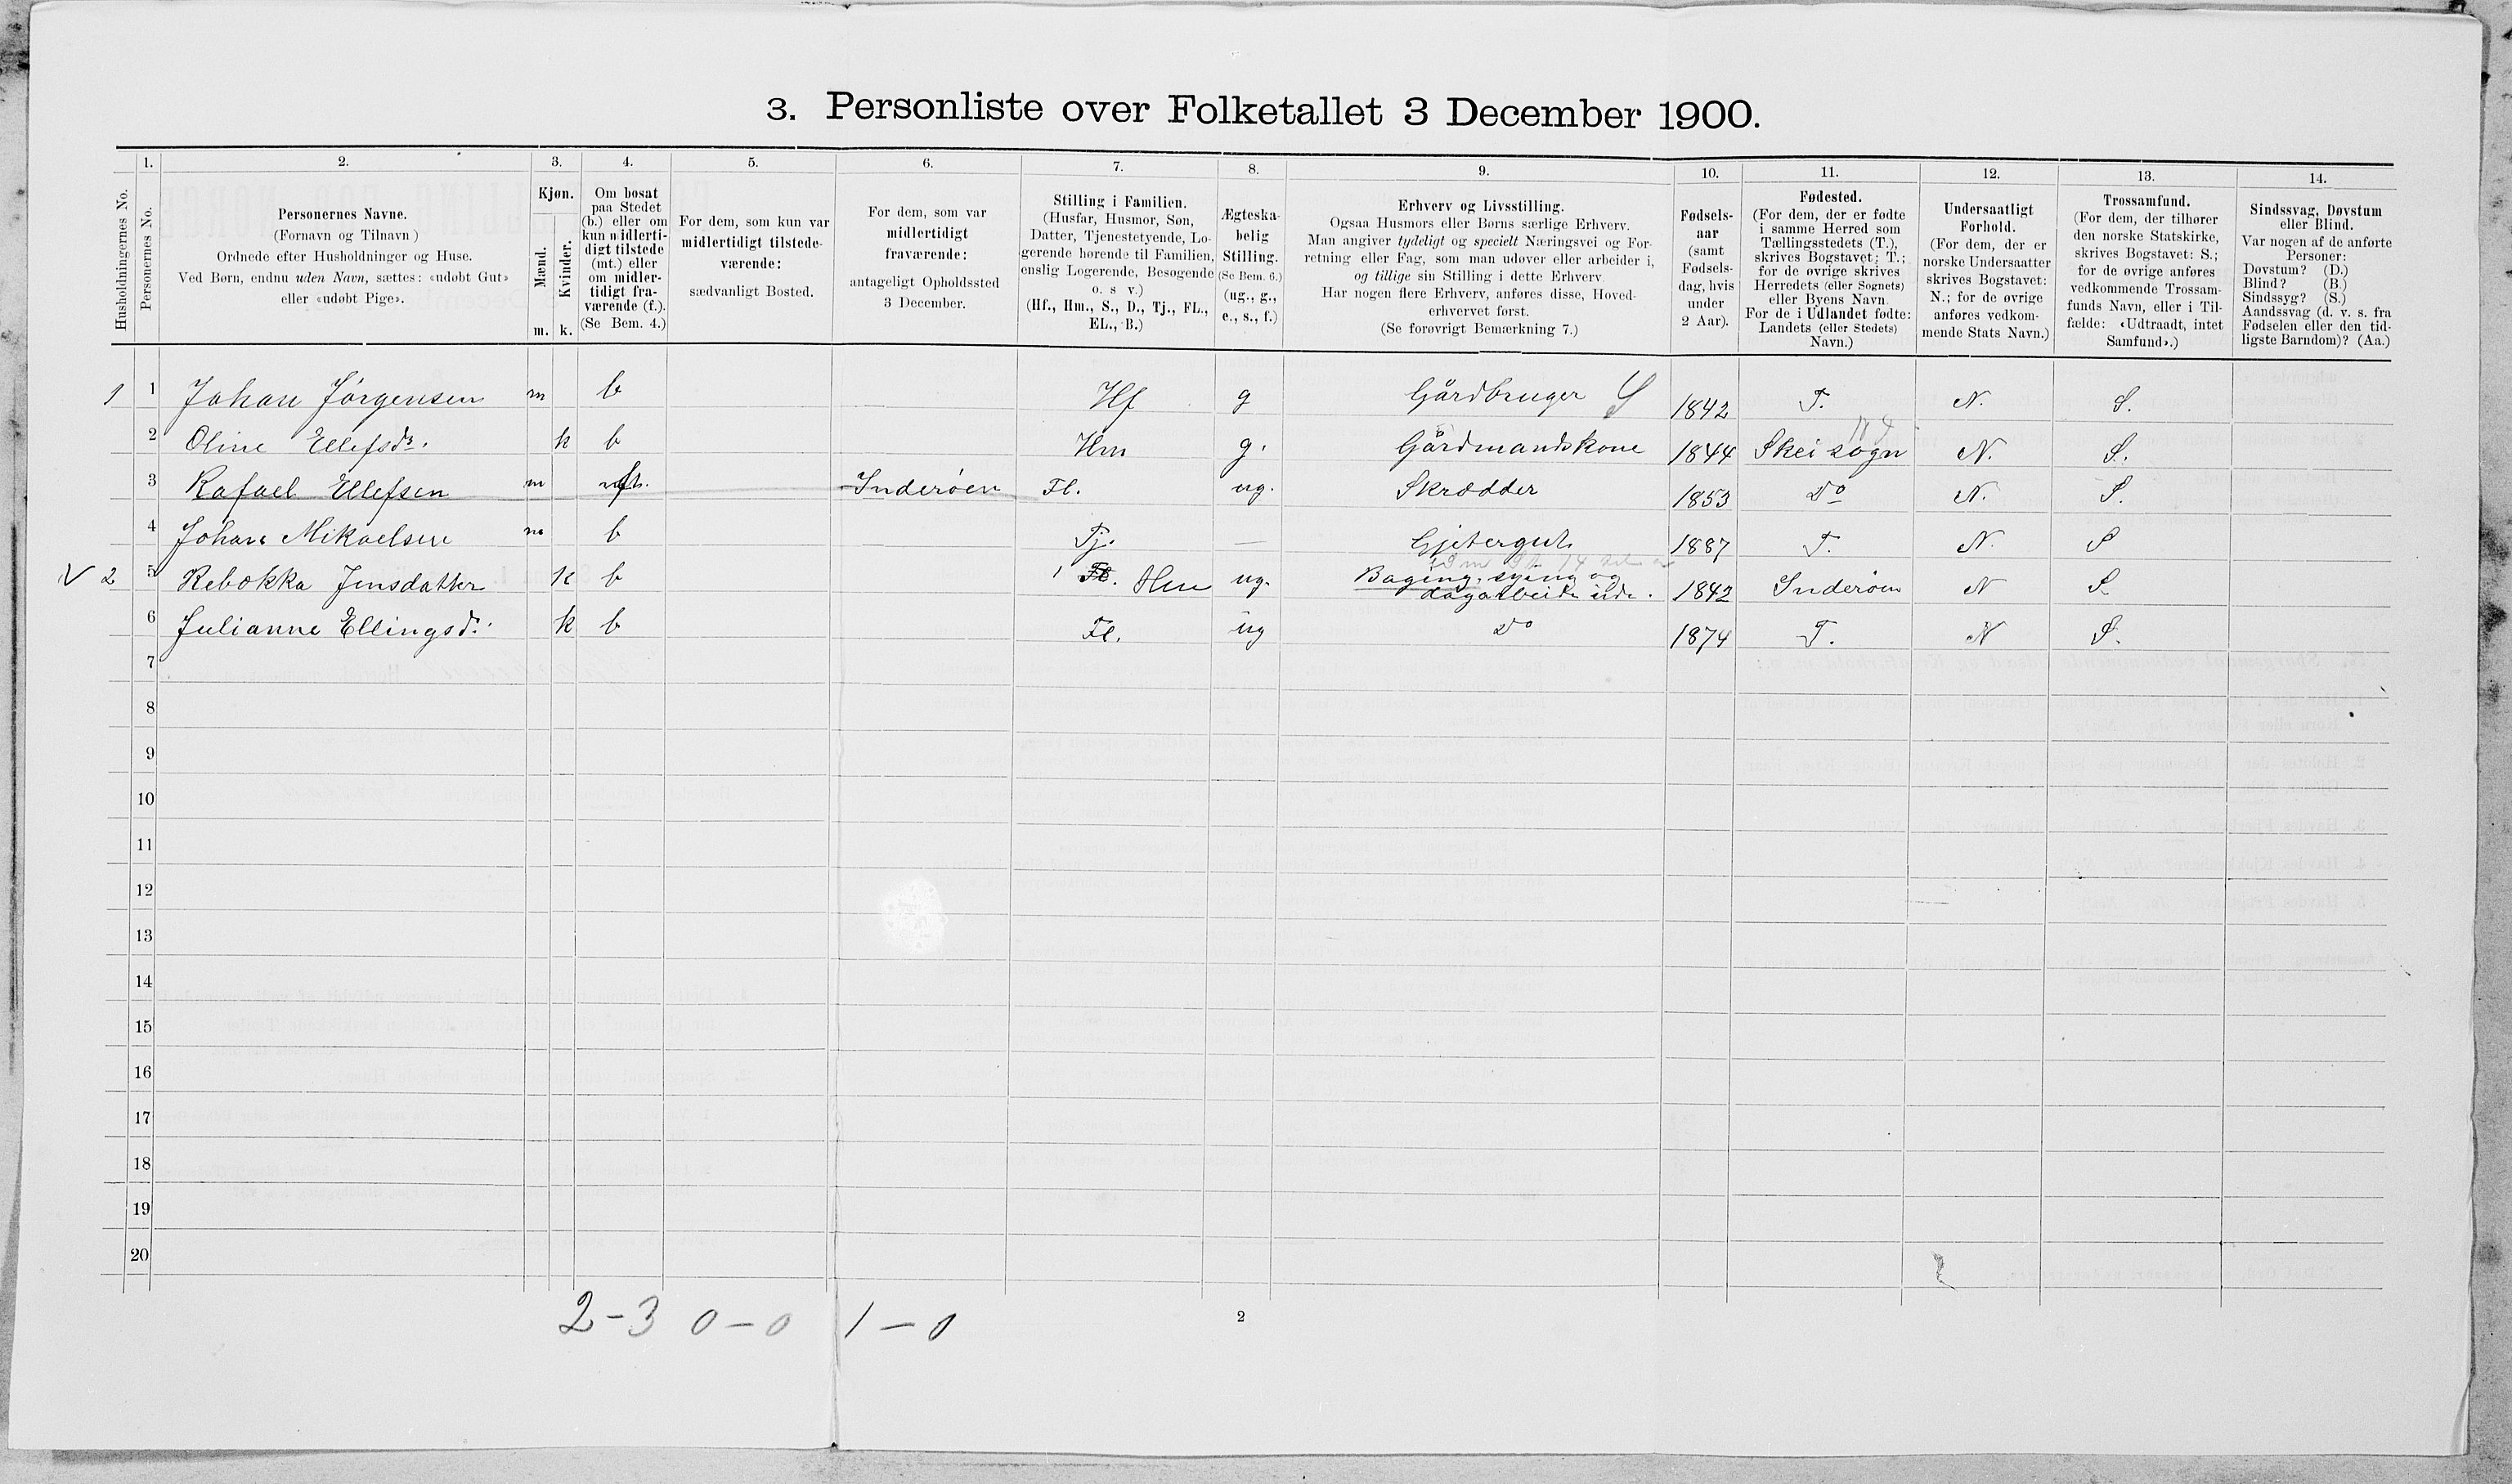 3. Personliste over Folketallet 3 December 1900.
1. 2. 3. 4. 5. 6. 7. 8. 9. 10. 11. 12. 13. 14.
Husholdningernes No.
Personernes No.
Personernes Navne.
(Fornavn og Tilnavn )
Ordnede efter Husholdninger og Huse.
Ved Børn, endnu uden Navn, sættes: «udøbt Gut»
eller «udøbt Pige».
Kjøn.
Mænd.
Kvinder.
m. k.
Om bosat
paa Stedet
(b.) eller om
kun midlerti-
digt tilstede
(mt.) eller
om midler-
tidigt fra-
værende (f.).
(Se Bem. 4.)
For dem, som kun var
midlertidigt tilstede-
værende:
sædvanligt Bosted.
For dem, som var
midlertidigt
fraværende:
antageligt Opholdssted
3 December.
Stilling i Familien.
(Husfar, Husmor, Søn,
Datter, Tjenestetyende, Lo-
gerende hørende til Familien,
enslig Logerende, Besøgende
o. s v.)
(Hf., Hm., S., D., Tj., FL.,
EL., B.)
Ægteska-
belig
Stilling.
(Se Bem. 6.)
(ug., g.,
e., s., f.)
Erhverv og Livsstilling.
Ogsaa Husmors eller Børns særlige Erhverv.
Man angiver tydeligt og specielt Næringsvei og For-
retning eller Fag, som man udøver eller arbeider i,
og tillige sin Stilling i dette Erhverv.
Har nogen flere Erhverv, anføres disse, Hoved-
erhvervet først.
(Se forøvrigt Bemærkning 7.)
Fødsels-
aar
(samt
Fødsels-
dag, hvis
under
2 Aar).
Fødested.
(For dem, der er fødte
i samme Herred som
Tællingsstedets (T.),
skrives Bogstavet: T.;
for de øvrige skrives
Herredets (eller Sognets)
eller Byens Navn
For de i Udlandet fødte:
Landets (eller Stedets)
Navn.)
Undersaatligt
Forhold.
(For dem, der er
norske Undersaatter
skrives Bogstavet:
N.; for de øvrige
anføres vedkom-
mende Stats Navn.)
Trossamfund.
(For dem, der tilhører
den norske Statskirke,
skrives Bogstavet: S.;
for de øvrige anføres
vedkommende Trossam-
funds Navn, eller i Til-
fælde: «Udtraadt, intet
Samfund».)
Sindssvag, Døvstum
eller Blind.
Var nogen af de anførte
Personer:
Døvstum? (D.)
Blind? (B.)
Sindssyg? (S.)
Aandssvag (d. v. s. fra
Fødselen eller den tid-
ligste Barndom)? (Aa.)
1 1 Johan Jörgensen m b Hf g Gårdbruger S 1842 T. N. S.
2 Oline Ellefsdr. k b Hm g. Gårdmandskone 1844 Skei sogn N. S.
3 Rafael Ellefsen m f Inderöen Fl. ug. Skrædder 1853 Do N. S.
4 Johan Mikaelsen m b Tj. — Gjetergut 1887 T. N. S
V 2 5 Rebekka Jensdatter k b Fl. Hm ug. Baging, sying og 1842 Inderöen N S
dagarbeide ude.
6 Julianne Ellingsd. k b Fl. ug Do 1874 T. N S.
7
8
9
10
11
12
13
14
15
16
17
18
19
20
2-3 0-0 1-0
2